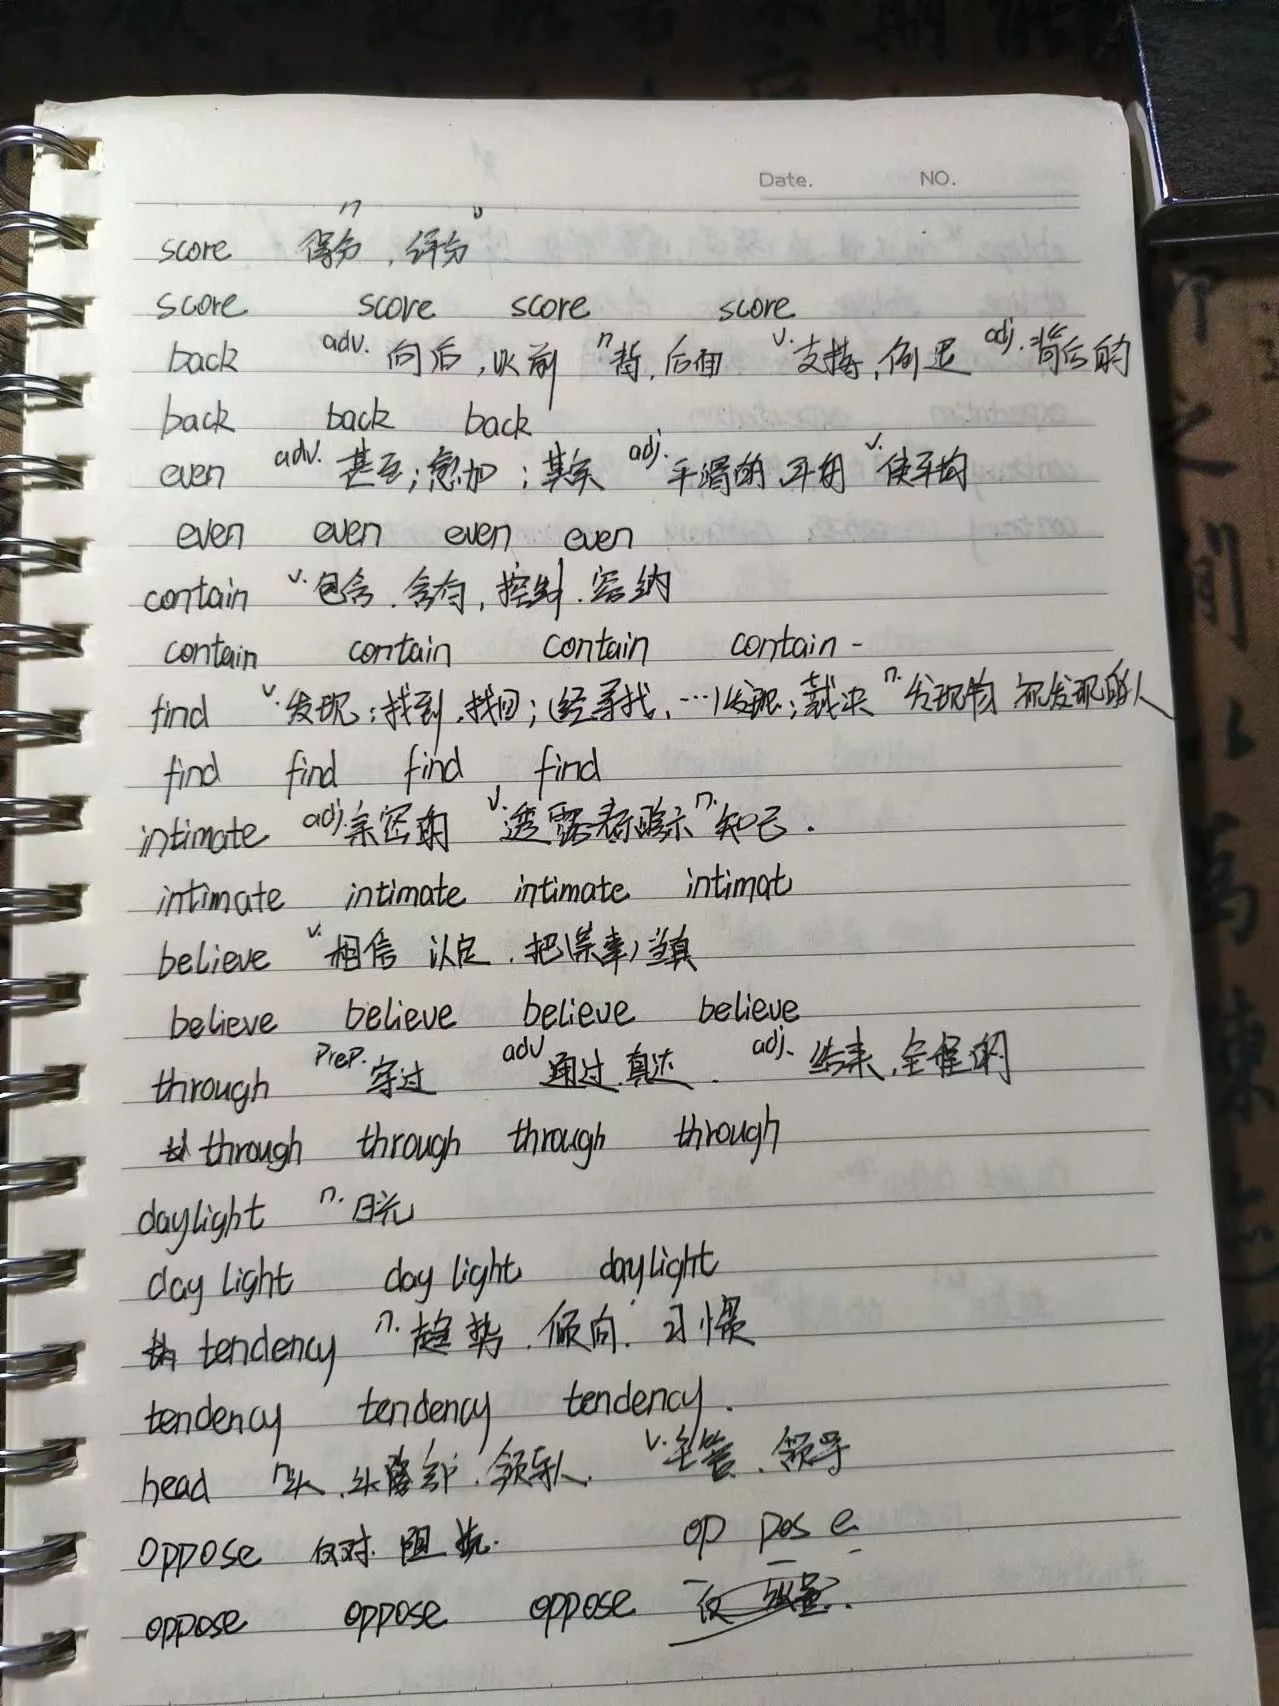 Date. NO.
n v
score 得分, 评分
score score score score
back adv. 向后, 以前 n 背, 后面 v. 支持, 倒退 adj. 背后的
back back back
even adv. 甚至; 愈加; 其实 adj. 平滑的, 平均 v. 使平均
even even even even
contain v. 包含. 含有, 控制. 容纳
contain contain contain contain -
find v. 发现; 找到, 找回; (经寻找, …)发现; 裁决 n. 发现物 被发现的人
find find find find
intimate adj. 亲密的 v. 透露 暗示 n. 知己.
intimate intimate intimate intimat
believe v. 相信 认定. 把(某事)当真
believe believe believe believe
through prep. 穿过 adv 通过, 直达. adj. 结束, 全程的
through through through through
daylight n. 日光
day light day light daylight
tendency n. 趋势. 倾向. 习惯
tendency tendency tendency.
head n 头, 头部. 领导人. v. 主管. 领导
oppose 反对. 阻抗. op pos e
oppose oppose oppose 反 放置.